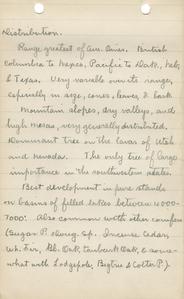 Distribution.
Range greatest of Am. Pines. British
Columbia to Mexico, Pacific to Dak., Neb,
& Texas. Very variable over its range,
especially in size, cones, leaves, & bark.
Mountain slopes, dry valleys, and
high mesas, very generally distributed.
Dominant tree on the lavas of Utah
and Nevada. The only tree of large
importance in the southwestern states.
Best development in pure stands
on basins of filled lakes between 4000-
7000'. Also common with other conifers
(Sugar P. Doug. Sp. Incense Cedar,
Wh. Fir, Bl. Oak, Tanbark Oak, & some-
what with Lodgepole, Bigtree & Coulter P.).